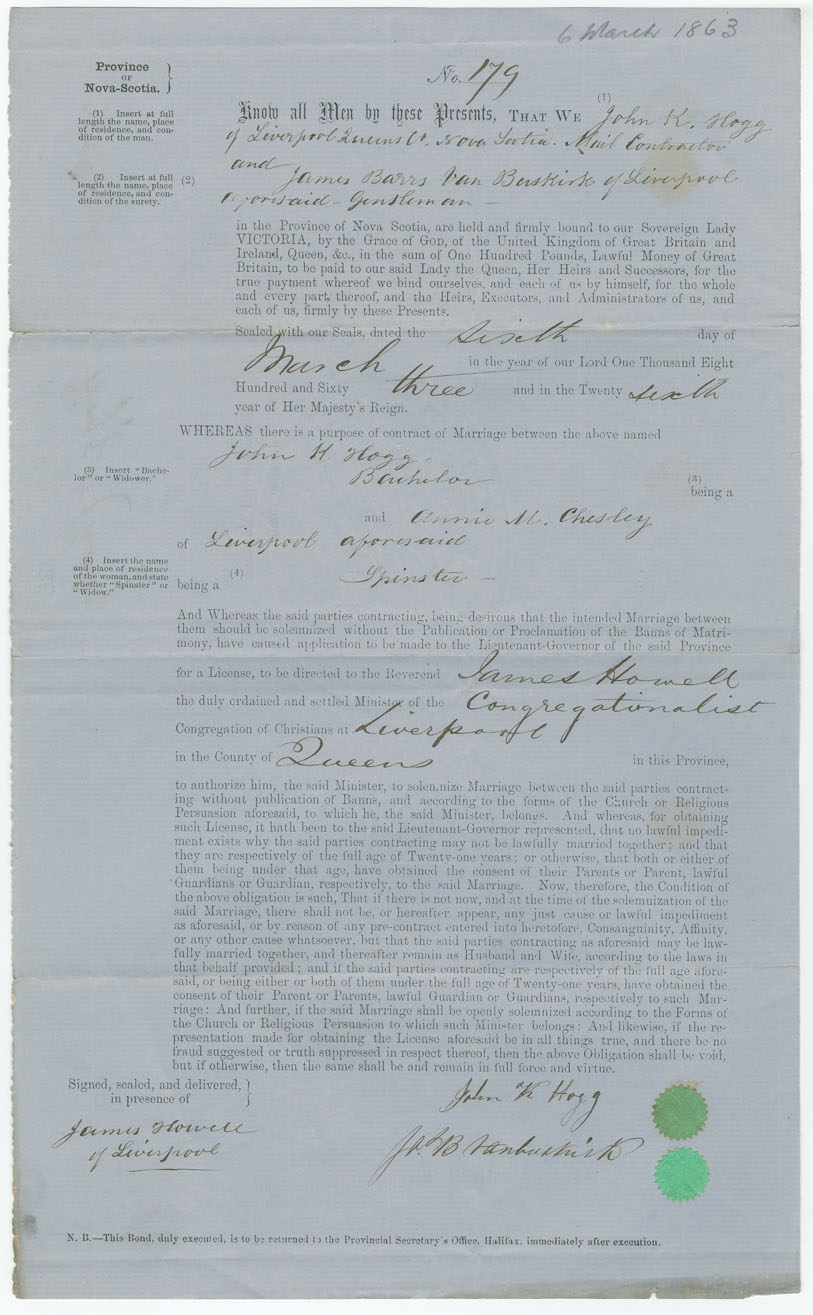 6 March 1863
Province
OF
Nova-Scotia.
No. 179
(1) Insert at full
length the name, place
of residence, and con-
dition of the man.
(1)
Know all Men by these Presents, THAT WE John K. Hogg
of Liverpool Queens Co. Nova Scotia. Mail Contractor
and
(2) Insert at full
length the name, place
of residence, and con-
dition of the surety.
(2)
James Barrs Van Buskirk of Liverpool
aforesaid - Gentleman -
in the Province of Nova Scotia, are held and firmly bound to our Sovereign Lady
VICTORIA, by the Grace of GOD, of the United Kingdom of Great Britain and
Ireland, Queen, &c., in the sum of One Hundred Pounds, Lawful Money of Great
Britain, to be paid to our said Lady the Queen, Her Heirs and Successors, for the
true payment whereof we bind ourselves, and each of us by himself, for the whole
and every part thereof, and the Heirs, Executors, and Administrators of us, and
each of us, firmly by these Presents.
Sealed with our Seals, dated the sixth day of
March in the year of our Lord One Thousand Eight
Hundred and Sixty three and in the Twenty sixth
year of Her Majesty's Reign.
WHEREAS there is a purpose of contract of Marriage between the above named
John K Hogg
(3) Insert "Bache-
lor" or "Widower."
(3)
being a
Bachelor
and Annie M. Chesley
of Liverpool aforesaid
(4) Insert the name
and place of residence
of the woman, and state
whether "Spinster" or
"Widow."
(4)
being a Spinster -
And Whereas the said parties contracting, being desirous that the intended Marriage between
them should be solemnized without the Publication or Proclamation of the Banns of Matri-
mony, have caused application to be made to the Lieutenant-Governor of the said Province
for a License, to be directed to the Reverend James Howell
the duly ordained and settled Minister of the Congregationalist
Congregation of Christians at Liverpool
in the County of Queens in this Province,
to authorize him, the said Minister, to solemnize Marriage between the said parties contract-
ing without publication of Banns, and according to the forms of the Church or Religious
Persuasion aforesaid, to which he, the said Minister, belongs. And whereas, for obtaining
such License, it hath been to the said Lieutenant-Governor represented, that no lawful impedi-
ment exists why the said parties contracting may not be lawfully married together; and that
they are respectively of the full age of Twenty-one years; or otherwise, that both or either of
them being under that age, have obtained the consent of their Parents or Parent, lawful
Guardians or Guardian, respectively, to the said Marriage. Now, therefore, the Condition of
the above obligation is such, That if there is not now, and at the time of the solemnization of the
said Marriage, there shall not be, or hereafter appear, any just cause or lawful impediment
as aforesaid, or by reason of any pre-contract entered into heretofore, Consanguinity, Affinity,
or any other cause whatsoever, but that the said parties contracting as aforesaid may be law-
fully married together, and thereafter remain as Husband and Wife, according to the laws in
that behalf provided; and if the said parties contracting are respectively of the full age afore-
said, or being either or both of them under the full age of Twenty-one years, have obtained the
consent of their Parent or Parents, lawful Guardian or Guardians, respectively to such Mar-
riage: And further, if the said Marriage shall be openly solemnized according to the Forms of
the Church or Religious Persuasion to which such Minister belongs: And likewise, if the re-
presentation made for obtaining the License aforesaid be in all things true, and there be no
fraud suggested or truth suppressed in respect thereof, then the above Obligation shall be void,
but if otherwise, then the same shall be and remain in full force and virtue.
Signed, sealed, and delivered,
in presence of
James Howell
of Liverpool
John K Hogg
Js. B Vanbuskirk
N. B.—This Bond, duly executed, is to be returned to the Provincial Secretary's Office, Halifax, immediately after execution.